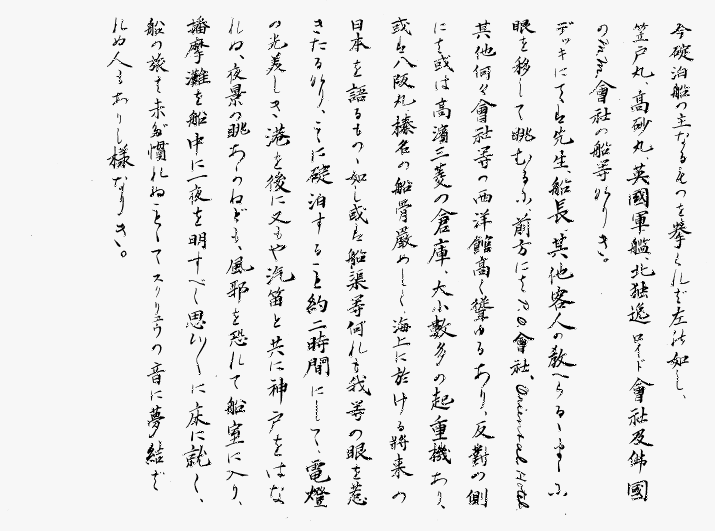 今碇泊船の主なるものを擧ぐれば左の如し、
笠戸丸、高砂丸、英國軍艦、北独逸ロイド會社及佛國
のM.M.會社の船等なりき。
デッキにては先生、船長、其他客人の教へらるゝまゝに
眼を移して眺むるに前方にはP.O會社、Oriental Hotel
其他何々會社等の西洋館高く聳ゆるあり、反對の側
には或は高濱三菱の倉庫、大小數多の起重機あり、
或は八阪丸、榛名の船骨嚴めしく海上に於ける將来の
日本を語るものゝ如し或は船渠等何れも我等の眼を惹
きたるなり、こゝに碇泊すること約二時間にして、電燈
の光美しき港を後に又もや汽笛と共に神戸をはな
れぬ、夜景の眺あかねども、風邪を恐れて船室に入り、
播摩灘を船中に一夜を明すべく思ひ〳〵に床に就く、
船の旅は未だ慣れぬこととてスクリュウの音に夢結ば
れぬ人もありし様なりき。